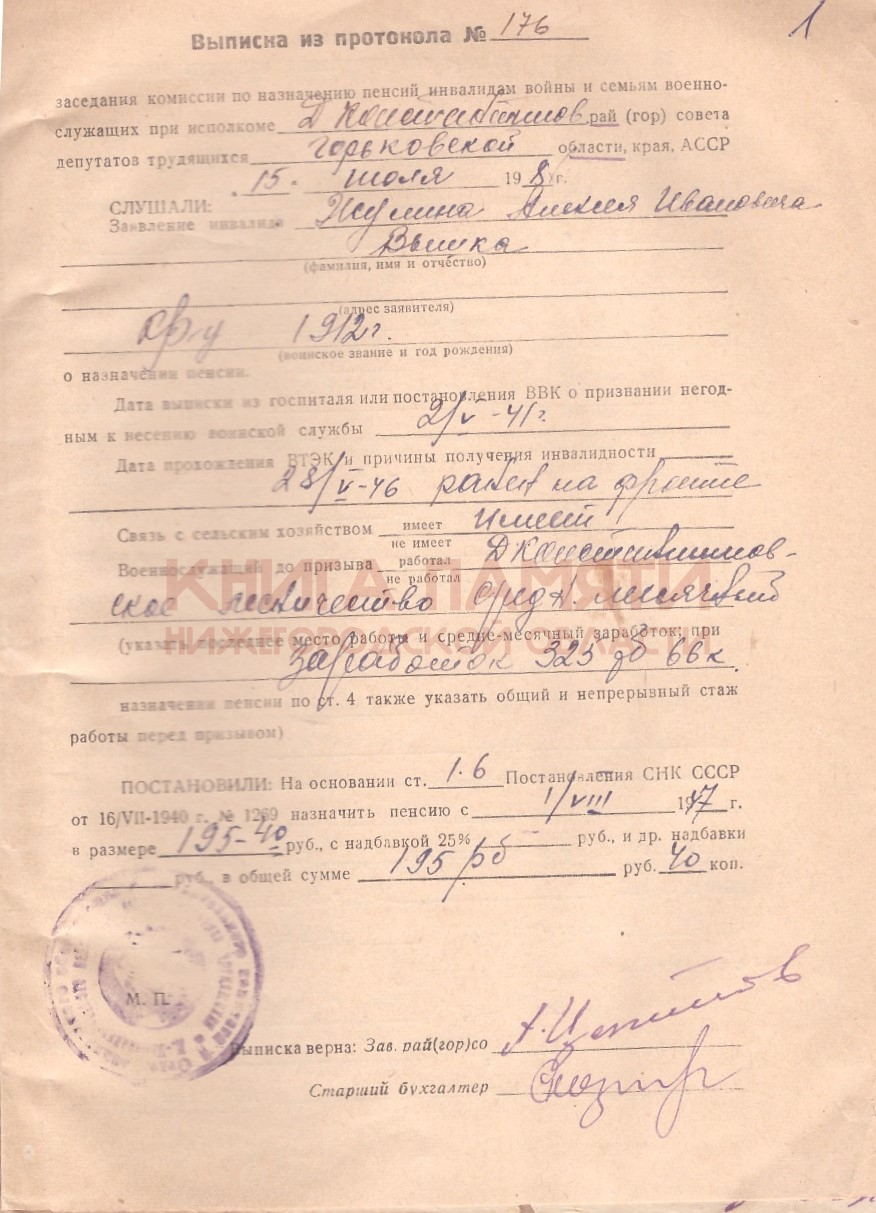 1
Выписка из протокола № 176
заседания комиссии по назначению пенсий инвалидам войны и семьям военно-
служащих при исполкоме Д Константинов. рай (гор) совета
депутатов трудящихся Горьковской области, края, АССР
15 июля 198г.
СЛУШАЛИ:
Заявление инвалида Жулина Алексея Ивановича
Вышка
(фамилия, имя и отчество)
(адрес заявителя)
1912 г.
(воинское звание и год рождения)
о назначении пенсии.
Дата выписки из госпиталя или постановления ВВК о признании негод-
ным к несению воинской службы 2/V-41 г.
Дата прохождения ВТЭК и причины получения инвалидности
28/V-46 ранен на фронте
Связь с сельским хозяйством имеет Имеет
не имеет
Военнослужащий до призыва работал Д Константинов-
не работал
ское лесничество средн. месячный
КНИГА ПАМЯТИ
НИЖЕГОРОДСКОЙ ОБЛАСТИ
(указать последнее место работы и средне-месячный заработок; при
заработок 325 рб 66 к
назначении пенсии по ст. 4 также указать общий и непрерывный стаж
работы перед призывом)
ПОСТАНОВИЛИ: На основании ст. 1.6 Постановления СНК СССР
от 16/VII-1940 г. № 1269 назначить пенсию с 1/VIII 1947 г.
в размере 195-40 руб., с надбавкой 25% руб., и др. надбавки
руб., в общей сумме 195 рб руб. 40 коп.
М. П.
Выписка верна: Зав. рай(гор)со
Старший бухгалтер